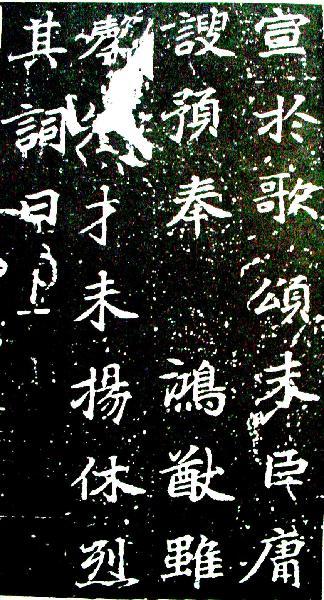 宣於歌頌末臣庸
謏預奉 鴻猷雖
才未揚休烈
其詞曰